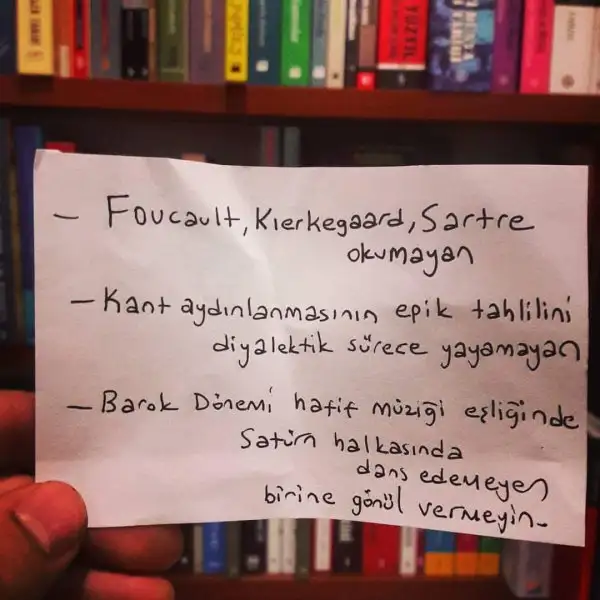 - Foucault, Kierkegaard, Sartre
okumayan
- Kant aydınlanmasının epik tahlilini
diyalektik sürece yayamayan
- Barok Dönemi hafif müziği eşliğinde
Satürn halkasında
dans edemeyen
birine gönül vermeyin.